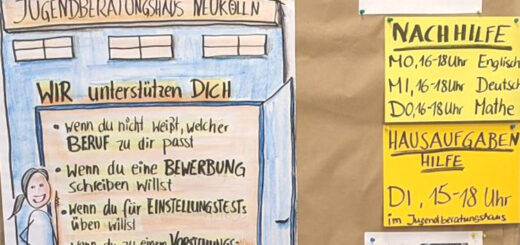 JUGENDBERATUNGSHAUS NEUKÖLLN
WIR unterstützen DICH
• wenn du nicht weißt, welcher
BERUF zu dir passt
• wenn du eine BEWERBUNG
schreiben willst
• wenn du für EINSTELLUNGSTESTS
üben willst
• wenn du zu einem VORSTELLUNGS-
NACHHILFE
MO, 16-18 Uhr Englisch
MI, 16-18 Uhr Deutsch
DO, 16-18 Uhr Mathe
HAUSAUFGABEN
HILFE
DI, 15-18 Uhr
im Jugendberatungshaus